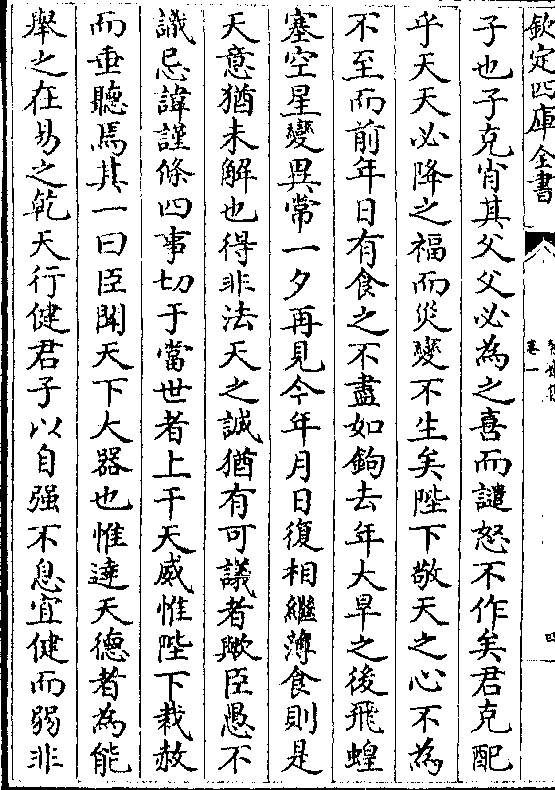 欽定四庫全書
卷一
四
子也子克肖其父父必為之喜而譴怒不作矣君克配
乎天天必降之福而災變不生矣陛下敬天之心不為
不至而前年日有食之不盡如鉤去年大旱之後飛蝗
塞空星變異常一夕再見今年月日復相繼薄食則是
天意猶未解也得非法天之誠猶有可議者歟臣愚不
識忌諱謹條四事切于當世者上干天威惟陛下裁赦
而垂聽焉其一曰臣聞天下大器也惟達天德者為能
舉之在易之乾天行健君子以自强不息宜健而弱非